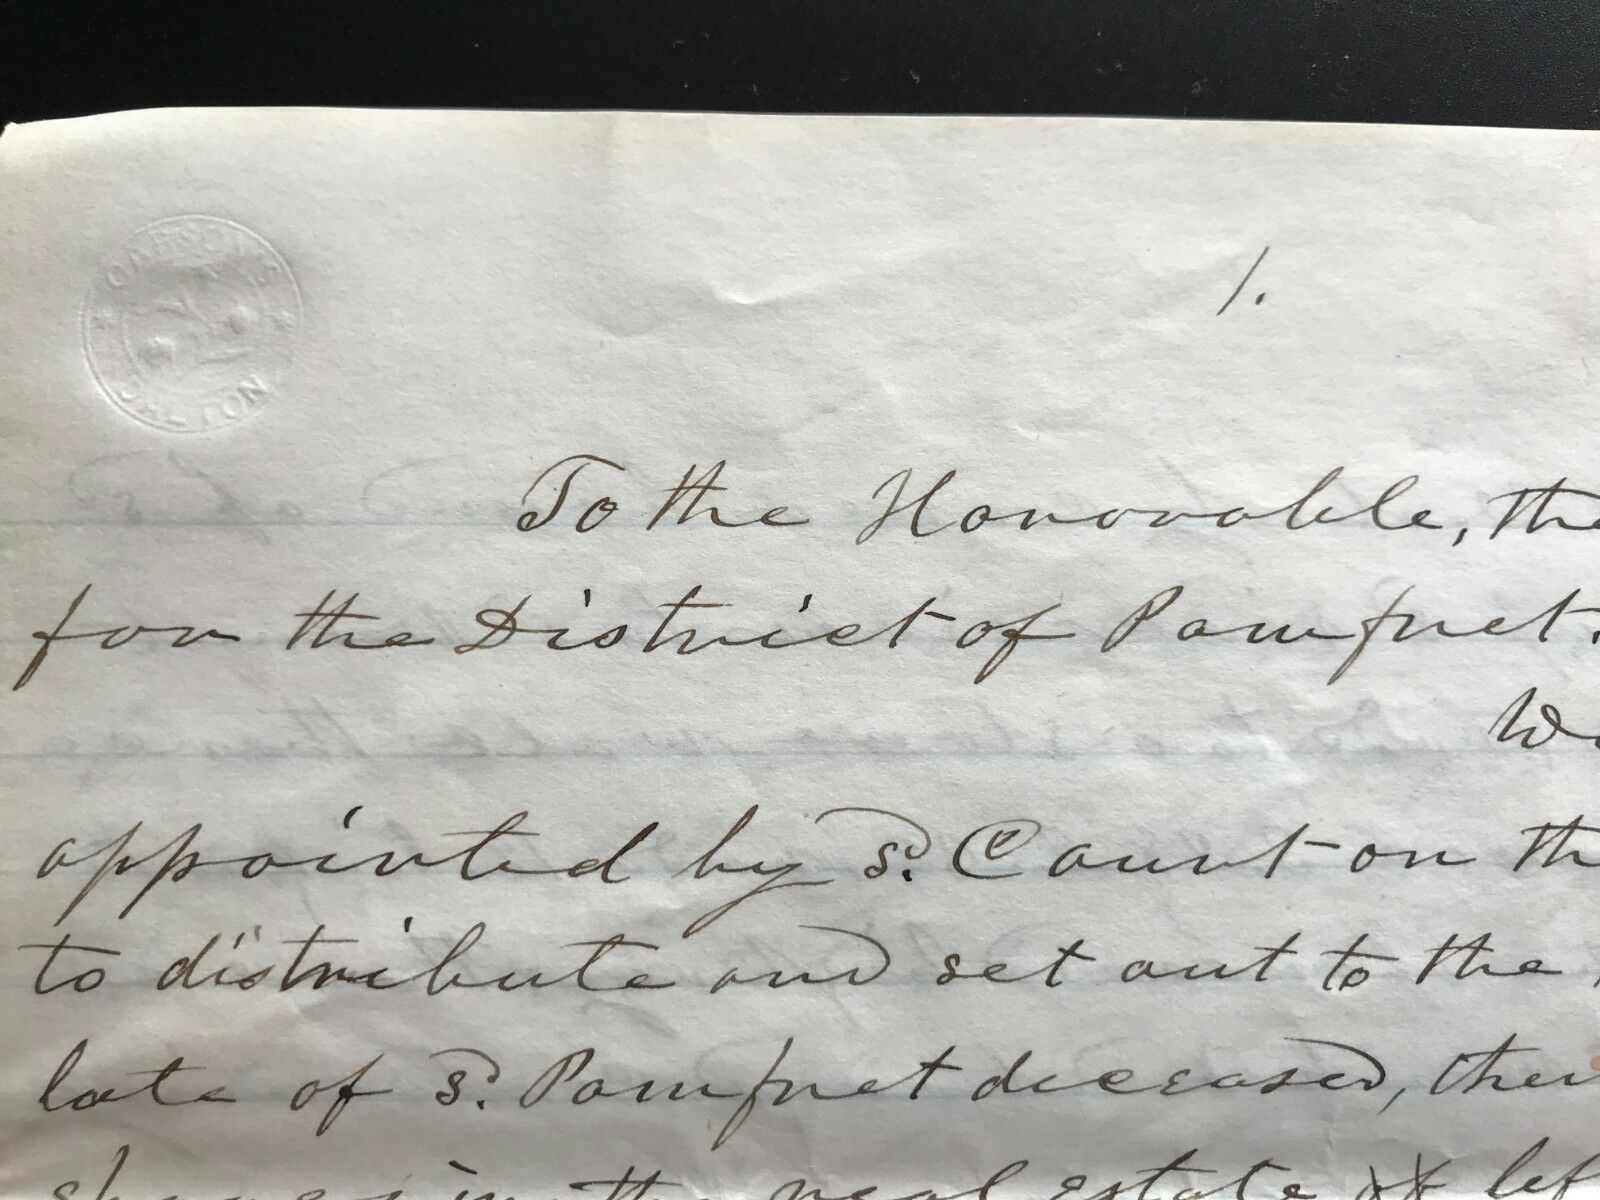 CARSON'S
DALTON
1.
To the Honorable, the
for the District of Pomfret.
appointed by sd. Court on th
to distribute and set out to the
late of sd. Pomfret deceased, their
shares in the real estate lef